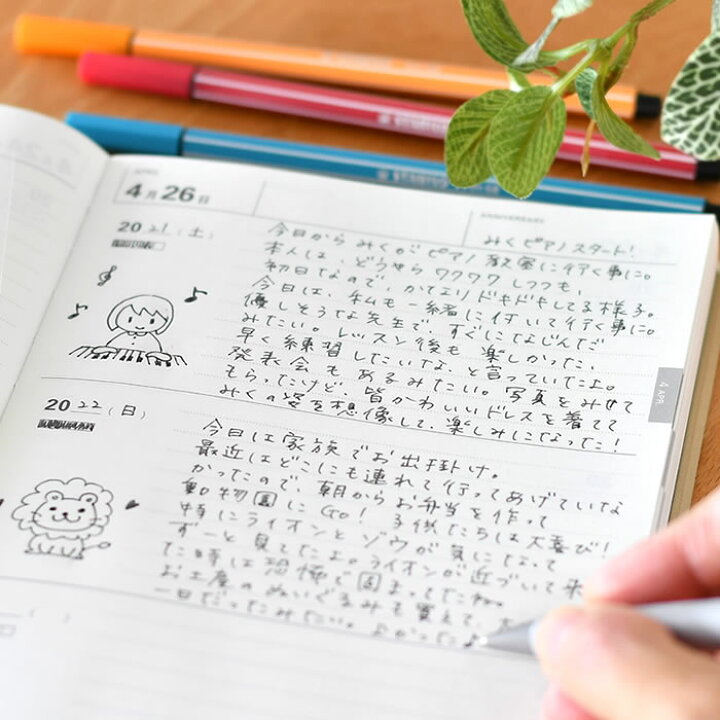 4月26日
ANNIVERSARY
みくピアノスタート!
2021(土)
今日からみくがピアノ教室に行く事に。
本人は、どうやらワクワクしつつも、
初日なので、かなりドキドキしてる様子。
今日は、私も一緒に付いて行く事に。
優しそうな先生で、すぐになじんだ
みたい。レッスン後も楽しかった、
早く練習したいな、と言っていたよ。
発表会もあるみたい。写真をみせて
もらったけど、皆かわいいドレスを着てて
みくの姿を想像して、楽しみになった!
4 APR
2022(日)
今日は家族でお出掛け。
最近はどこにも連れて行ってあげていな
かったので、朝からお弁当を作って
動物園にGO! 子供たちは大喜び!
特にライオンとゾウが気になって
ずーと見てたよ。ライオンが近づいて来
た時は恐怖で固まってたね。
お土産のぬいぐるみも買えて、
一日だったみたい。よかった♪